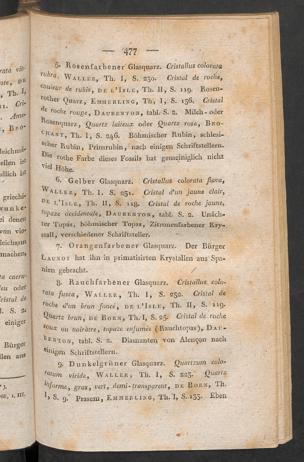 — 477 —
5. Rosenfarbener Glasquarz. Cristallus colorata
rubra, WALLER, Th. I, S. 230. Cristal de roche,
couleur de rubis, DE L'ISLE, Th. II, S. 119. Rosen-
rother Quarz, EMMERLING, Th. I, S. 136. Cristal
de roche rouge, DAUBENTON, tabl. S. 2. Milch- oder
Rosenquarz, Quartz laiteux oder Quartz rose, BRO-
CHANT, Th. I, S. 246. Böhmischer Rubin, schlesi-
scher Rubin, Primrubin, nach einigen Schriftstellern.
Die rothe Farbe dieses Fossils hat gemeiniglich nicht
viel Höhe.
6. Gelber Glasquarz. Cristallus colorata flava,
WALLER, Th. I. S. 231. Cristal d'un jaune clair,
DE L'ISLE, Th. II, S. 118. Cristal de roche jaune,
topaze occidentale, DAUBENTON, tabl. S. 2. Unäch-
ter Topas, böhmischer Topas, Zitronenfarbener Kry-
stall, verschiedener Schriftsteller.
7. Orangenfarbener Glasquarz. Der Bürger
LAUNOY hat ihn in primatisirten Krystallen aus Spa-
nien gebracht.
8. Rauchfarbener Glasquarz. Cristallus colo-
rata fusca, WALLER, Th. I, S. 230. Cristal de
roche d'un brun foncé, DE L'ISLE, Th. II, S. 119.
Quartz brun, DE BORN, Th. I, S. 25. Cristal de roche
roux ou noirâtre, topaze enfumée (Rauchtopas), DAU-
BENTON, tabl. S. 2. Diamanten von Alençon nach
einigen Schriftstellern.
9. Dunkelgrüner Glasquarz. Quartzum colo-
ratum viride, WALLER, Th. I, S. 223. Quartz
informe, gras, vert, demi-transparent, DE BORN, Th.
I, S. 9. Prasem, EMMERLING, Th. I, S. 133. Eben